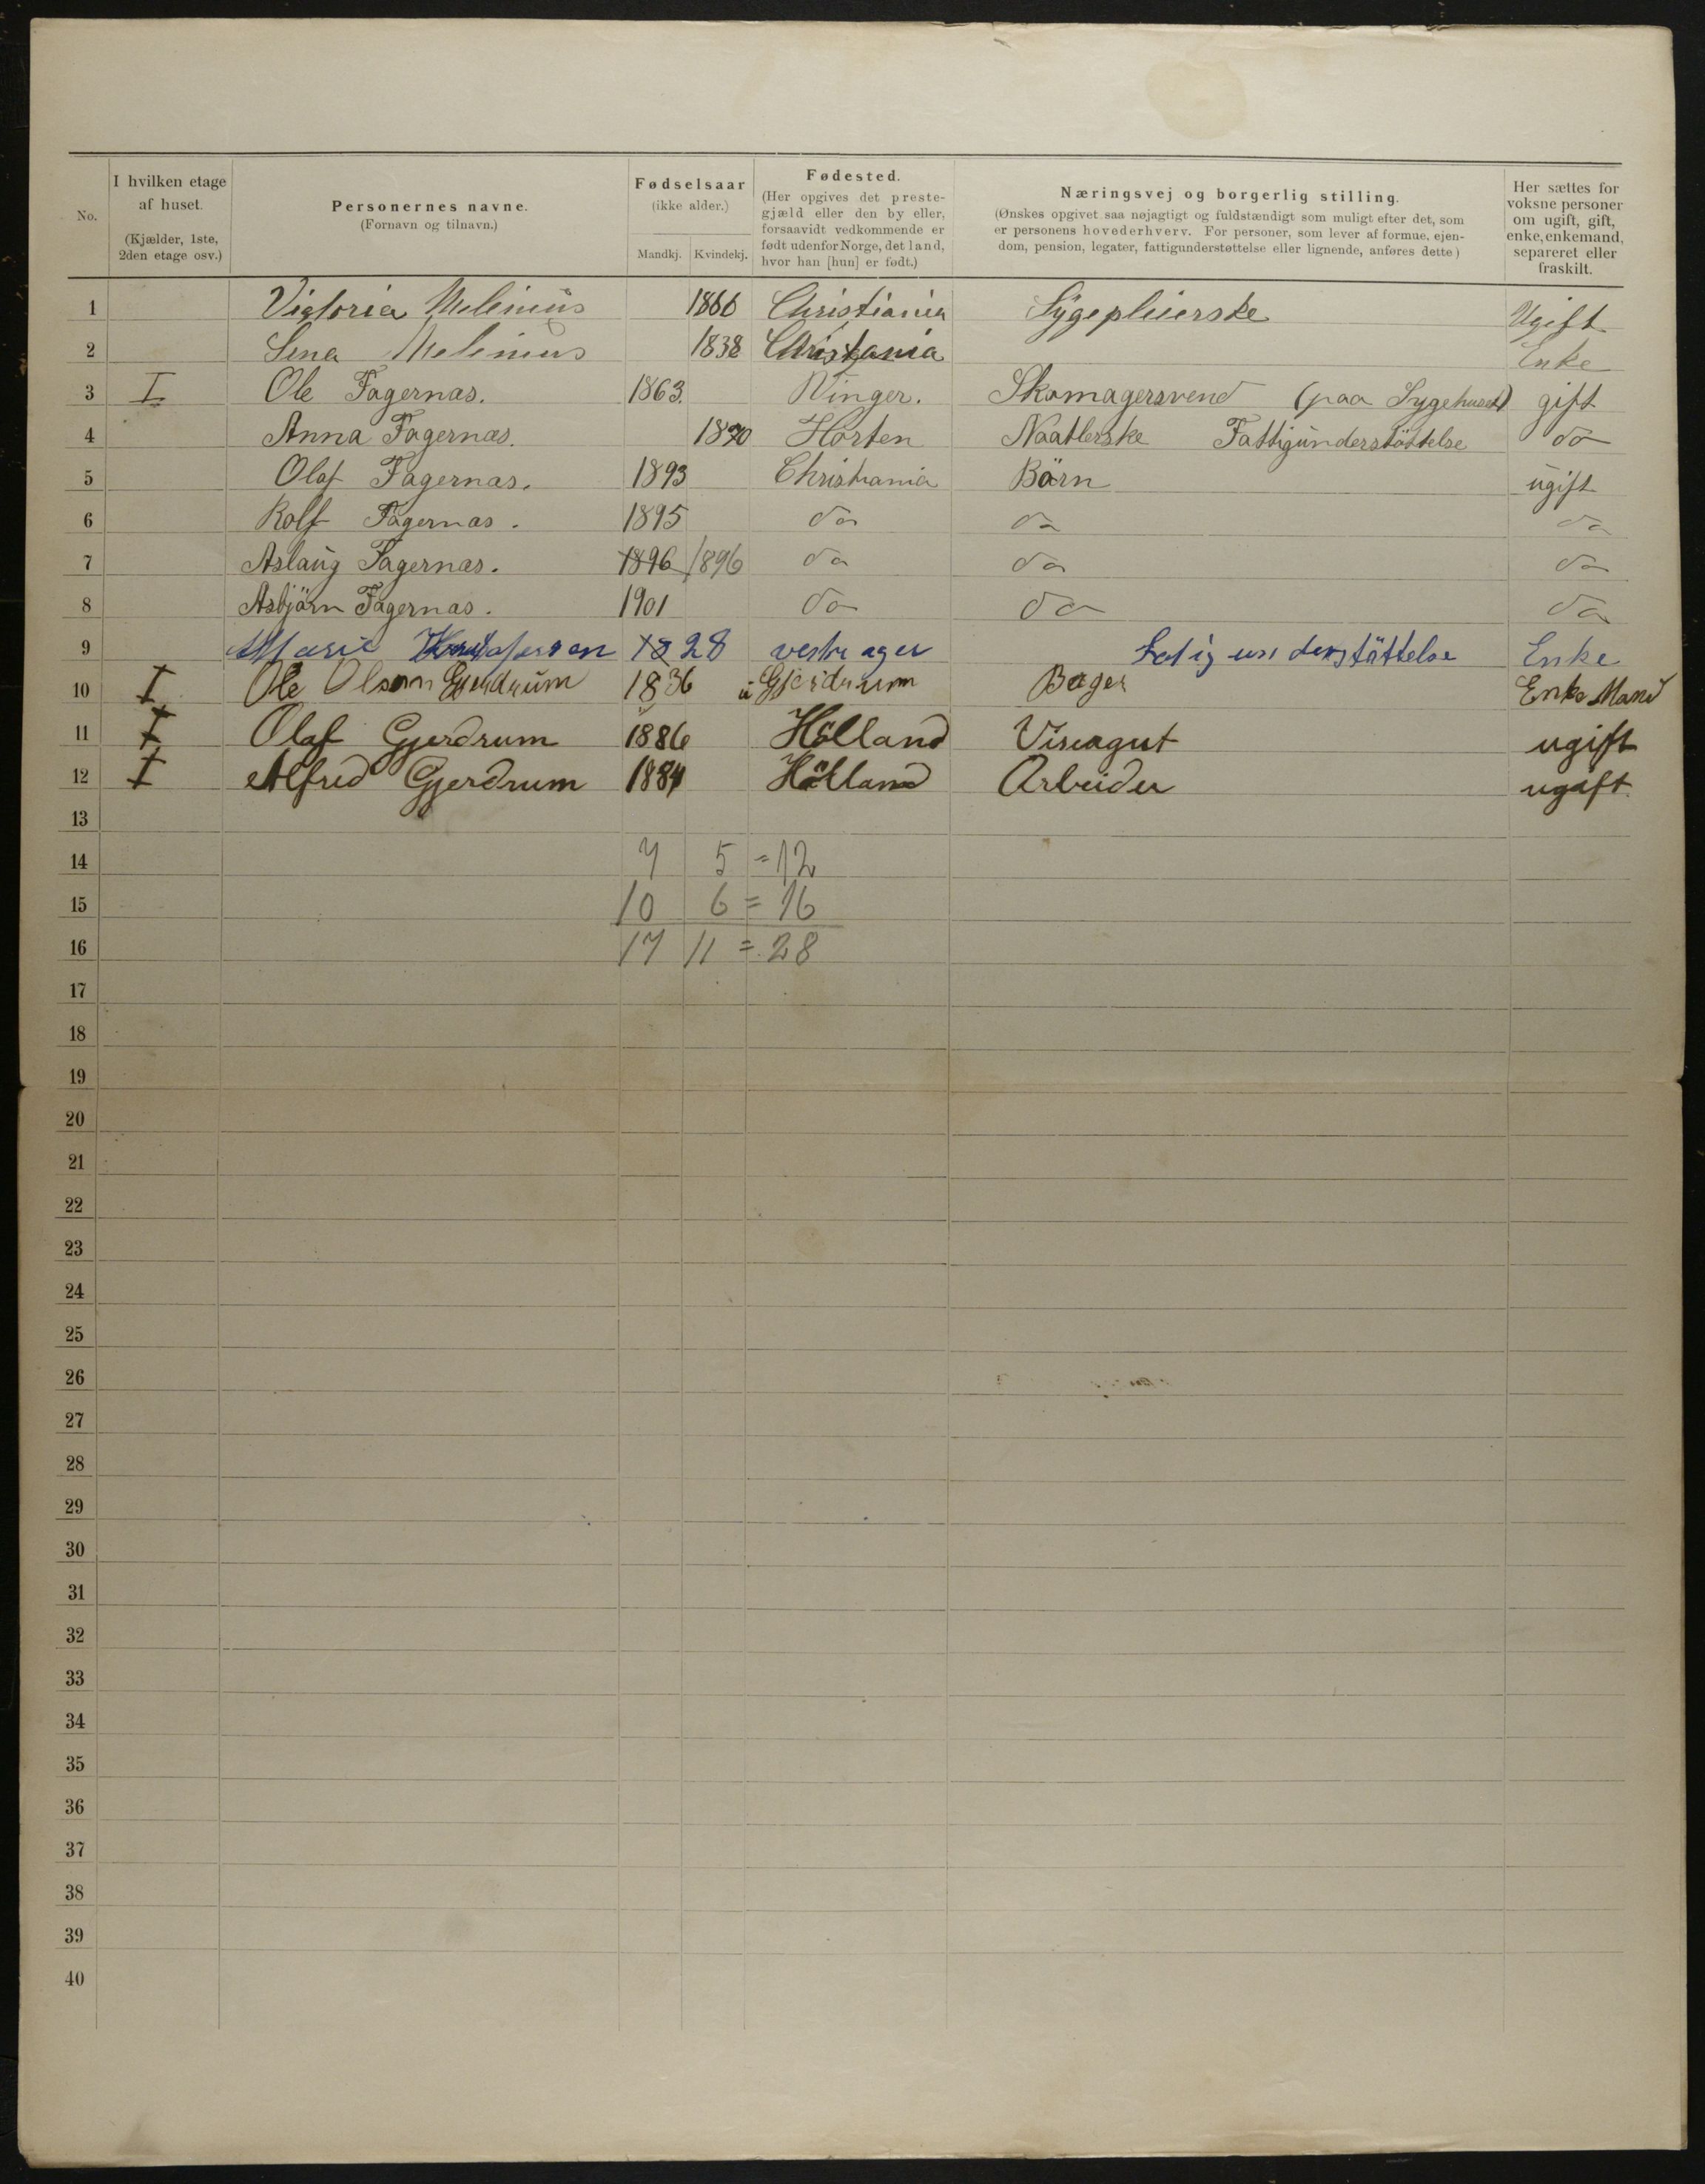 No.
I hvilken etage af huset. (Kjælder, 1ste, 2den etage osv.)
Personernes navne. (Fornavn og tilnavn.)
Fødselsaar (ikke alder.) Mandkj. Kvindekj.
Fødested. (Her opgives det prestegjæld eller den by eller, forsaavidt vedkommende er født udenfor Norge, det land, hvor han [hun] er født.)
Næringsvej og borgerlig stilling. (Ønskes opgivet saa nøjagtigt og fuldstændigt som muligt efter det, som er personens hovederhverv. For personer, som lever af formue, ejendom, pension, legater, fattigunderstøttelse eller lignende, anføres dette)
Her sættes for voksne personer om ugift, gift, enke, enkemand, separeret eller fraskilt.
1 Victoria Melinius 1866 Christiania Sygepleierske Ugift
2 Lena Melinius 1838 Christania Enke
3 I Ole Fagernas. 1863. Winger. Skomagersvend (paa Sygehuset) gift
4 Anna Fagernas. 1870 Horten Naatlerske Fattigunderstöttelse do
5 Olaf Fagernas. 1893 Christiania Börn ugift
6 Rolf Fagernas. 1895 do do do
7 Aslaug Fagernas. 1896 1896 do do do
8 Asbjörn Fagernas. 1901 do do do
9 Marie 1828 vestre ager Fatig understöttelse Enke
10 I Ole Olsen Gjerdrum 1836 Gjerdrum Bager Enke Mand
11 I Olaf Gjerdrum 1886 Hölland Viseagut ugift
12 I Alfred Gjerdrum 1884 Hölland Arbeider ugift
13
14 7 5 = 12
15 10 6 = 16
16 17 11 = 28
17
18
19
20
21
22
23
24
25
26
27
28
29
30
31
32
33
34
35
36
37
38
39
40